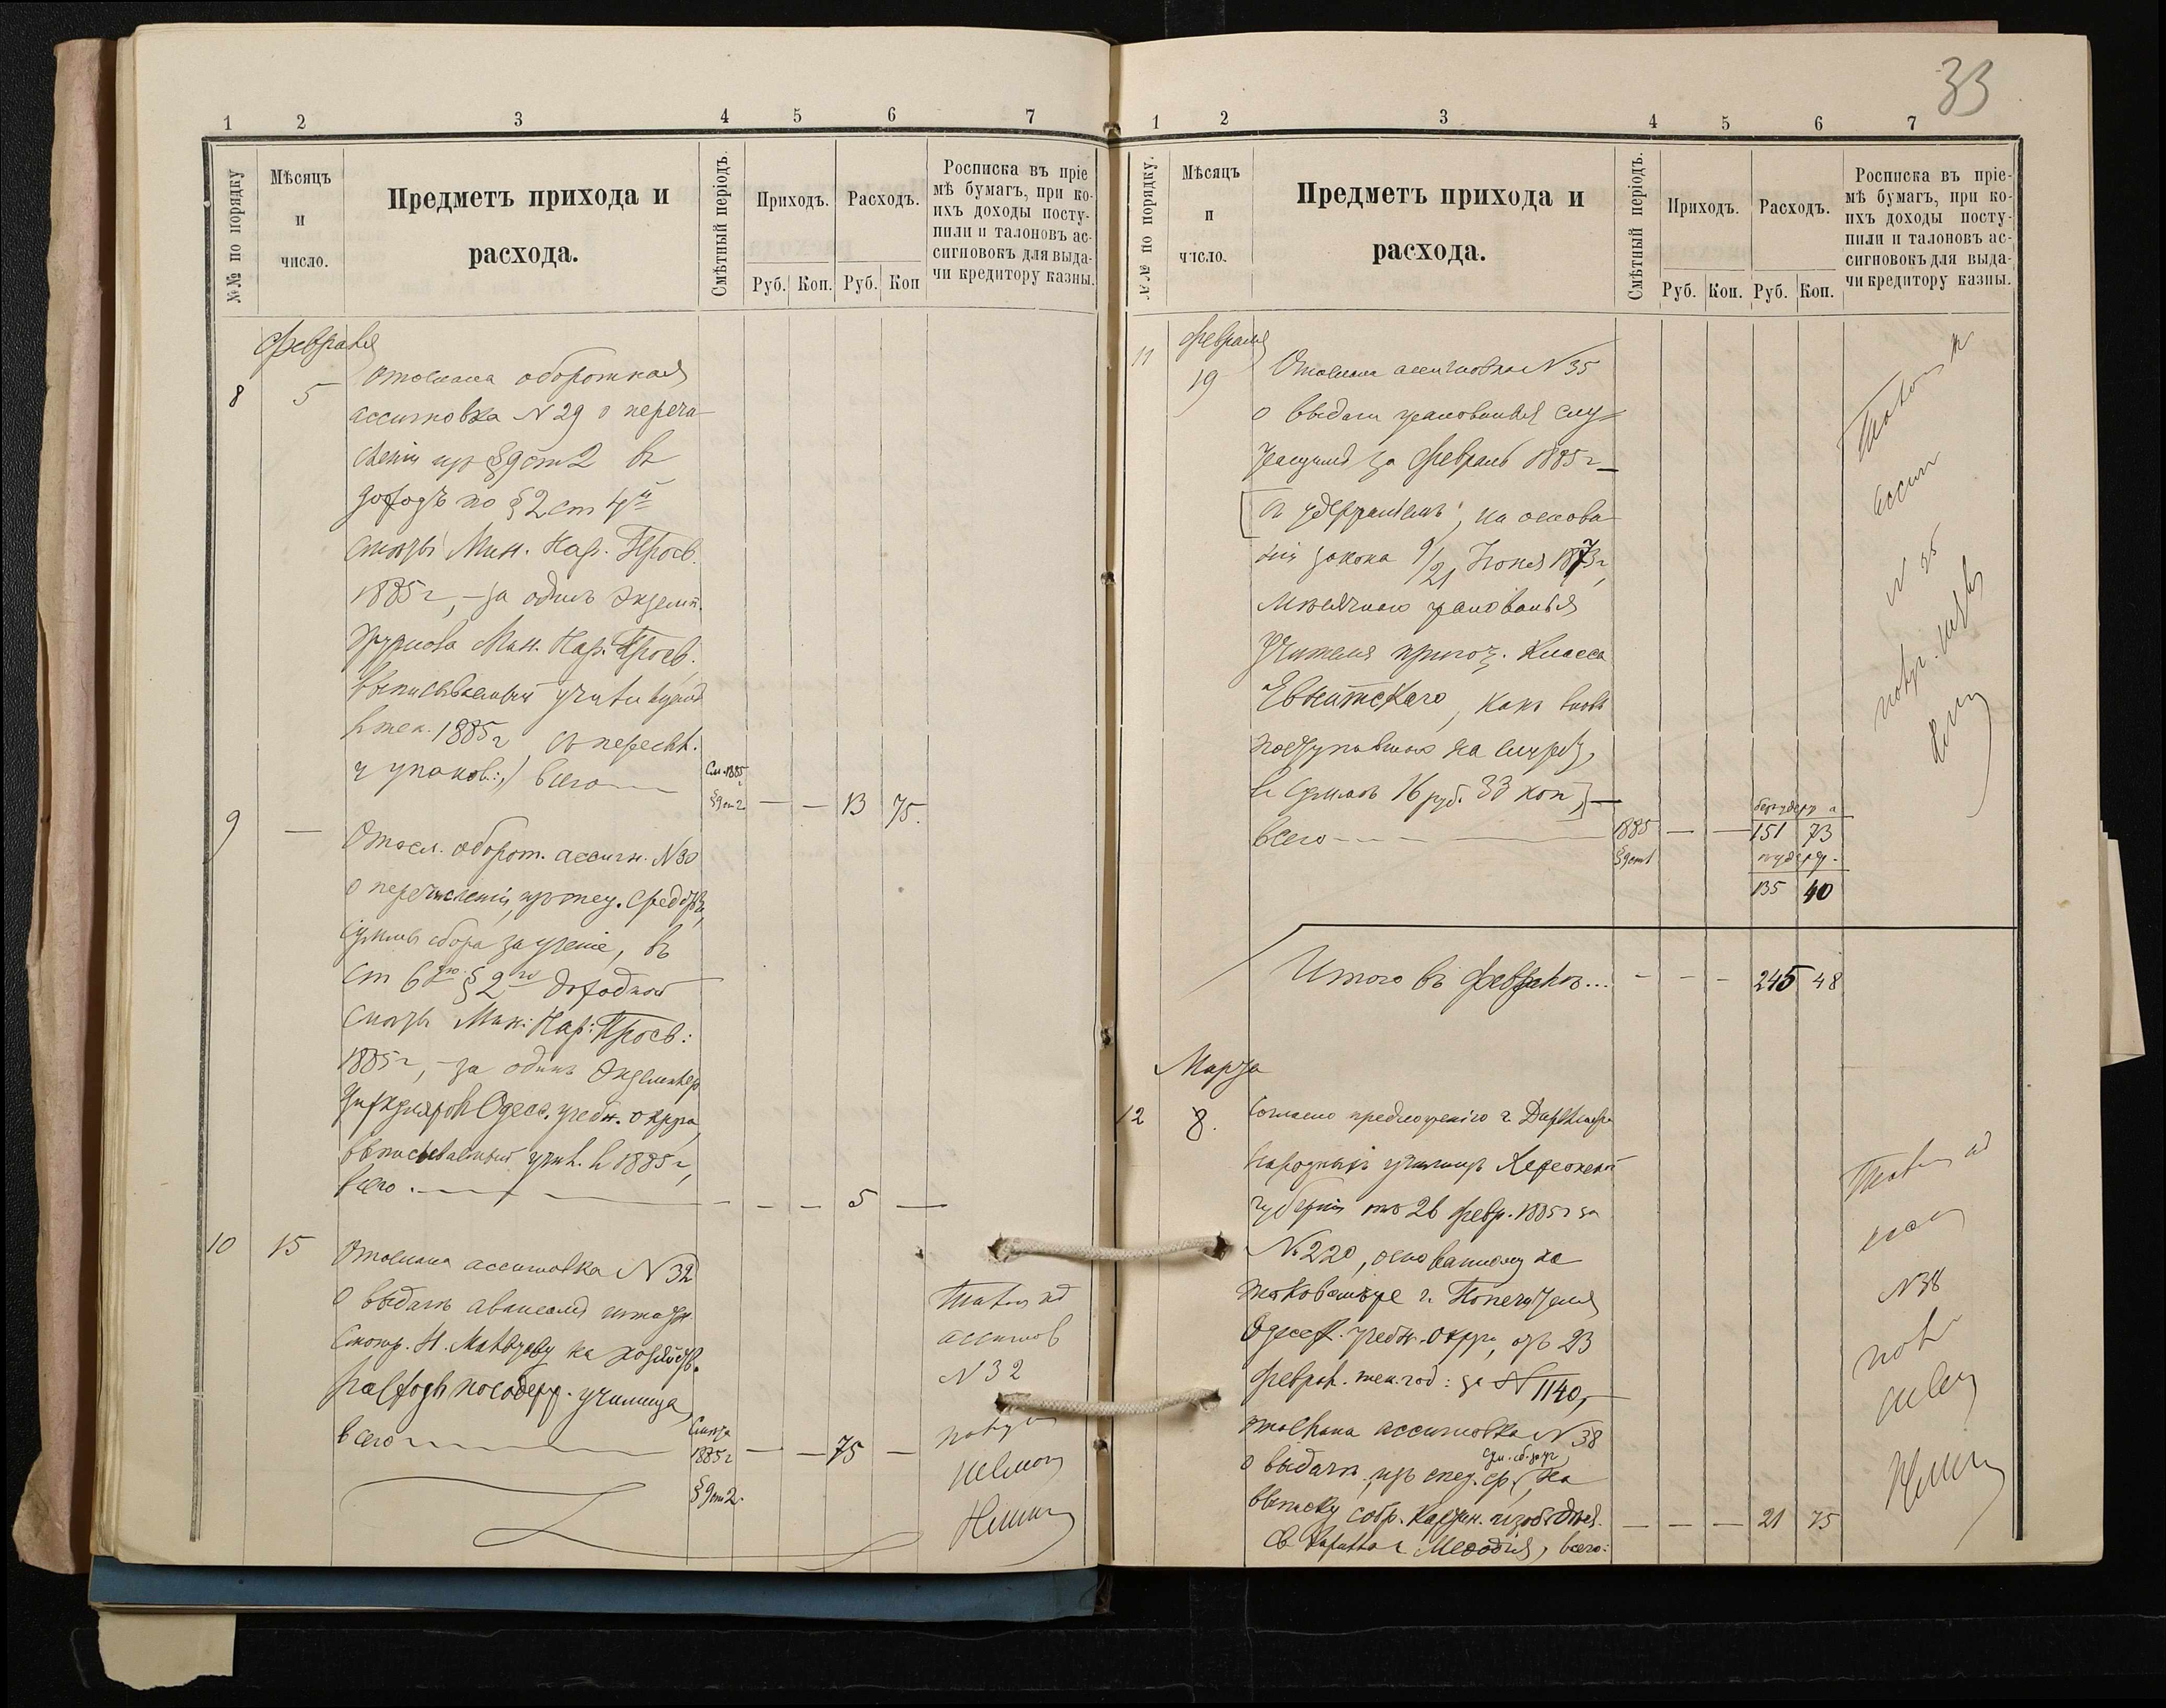 33
1 2 3 4 5 6 7
№№ по порядку
Мѣсяцъ
и
число.
Предметъ прихода и
расхода.
Смѣтный періодъ.
Приходъ.
Расходъ.
Руб. Коп. Руб. Коп
Росписка въ пріе
мѣ бумагъ, при ко-
ихъ доходы посту-
пили и талоновъ ас-
сигновокъ для выда-
чи кредитору казны.
Февраля
8 5 Отослана оборотная
ассигновка N 29 о перечи
сленіи изъ § 9 ст 2 въ
доходъ по § 2 ст 4й
смѣты Мин. Нар. Просв.
1885 г, – за одинъ экземп.
Журнала Мин. Нар. Просв.
выписываемый училищемъ
въ тек. 1885 г съ пересыл.
и упаков.:/ всего
См. 1885
§ 9 ст 2 — — 13 75.
9 — Отосл. оборот. ассигн. N 30
о перечисленіи, изъ спец. средствъ,
суммы сбора за ученіе, въ
ст 6ую § 2го доходной
смѣты Мин: Нар: Просв:
1885 г, – за одинъ экземпляр
Циркуляровъ Одесс. учебн. округа,
выписываемый учил. въ 1885 г,
всего. — — — 5 —
10 15 Отослана ассигновка N 32
о выдачѣ авансомъ штатн.
Смотр. Н. на хозяйств.
расходы по содерж. училища,
всего
Смѣта
1885 г
§ 9 ст 2. — — 75 —
Талонъ къ
ассигнов
N 32
получ
1 2 3 4 5 6 7
№№ по порядку.
Мѣсяцъ
и
число.
Предметъ прихода и
расхода.
Смѣтный періодъ.
Приходъ.
Расходъ.
Руб. Коп. Руб. Коп.
Росписка въ пріе-
мѣ бумагъ, при ко-
ихъ доходы посту-
пили и талоновъ ас-
сигновокъ для выда-
чи кредитору казны.
Февраля
11 19 Отослана ассигновка N 35
о выдачѣ жалованья слу
жащимъ за Февраль 1885 г —
[съ удержаніемъ, на основа
ніи закона 9/21 Іюня 1873 г,
мѣсячнаго жалованья
Учителя пригот. класса
какъ вновь
поступившаго на службу,
въ суммѣ 16 руб. 33 коп] —
всего
1885
§ 9 ст 1 — —
без удерж
151 73
135 40
Талонъ къ
ассигн
N 35
получ.
Итого въ Февралѣ... — — — 245 48
Марта
12 8. Согласно предложенію г. Директора
народныхъ училищъ Херсонской
губерніи отъ 26 февр. 1885 г за
№ 220, основанному на
г. Попечителя
Одесск. учебн. округа, отъ 23
Феврал. тек. год: за N 1140, —
отослана ассигновка N 38
о выдачѣ изъ спец. ср., на
сум. сб. за уч
выписку собр. картин. изобр.
Св Кирилла и Меѳодія, всего:
— — — 21 75
Талонъ къ
N 38